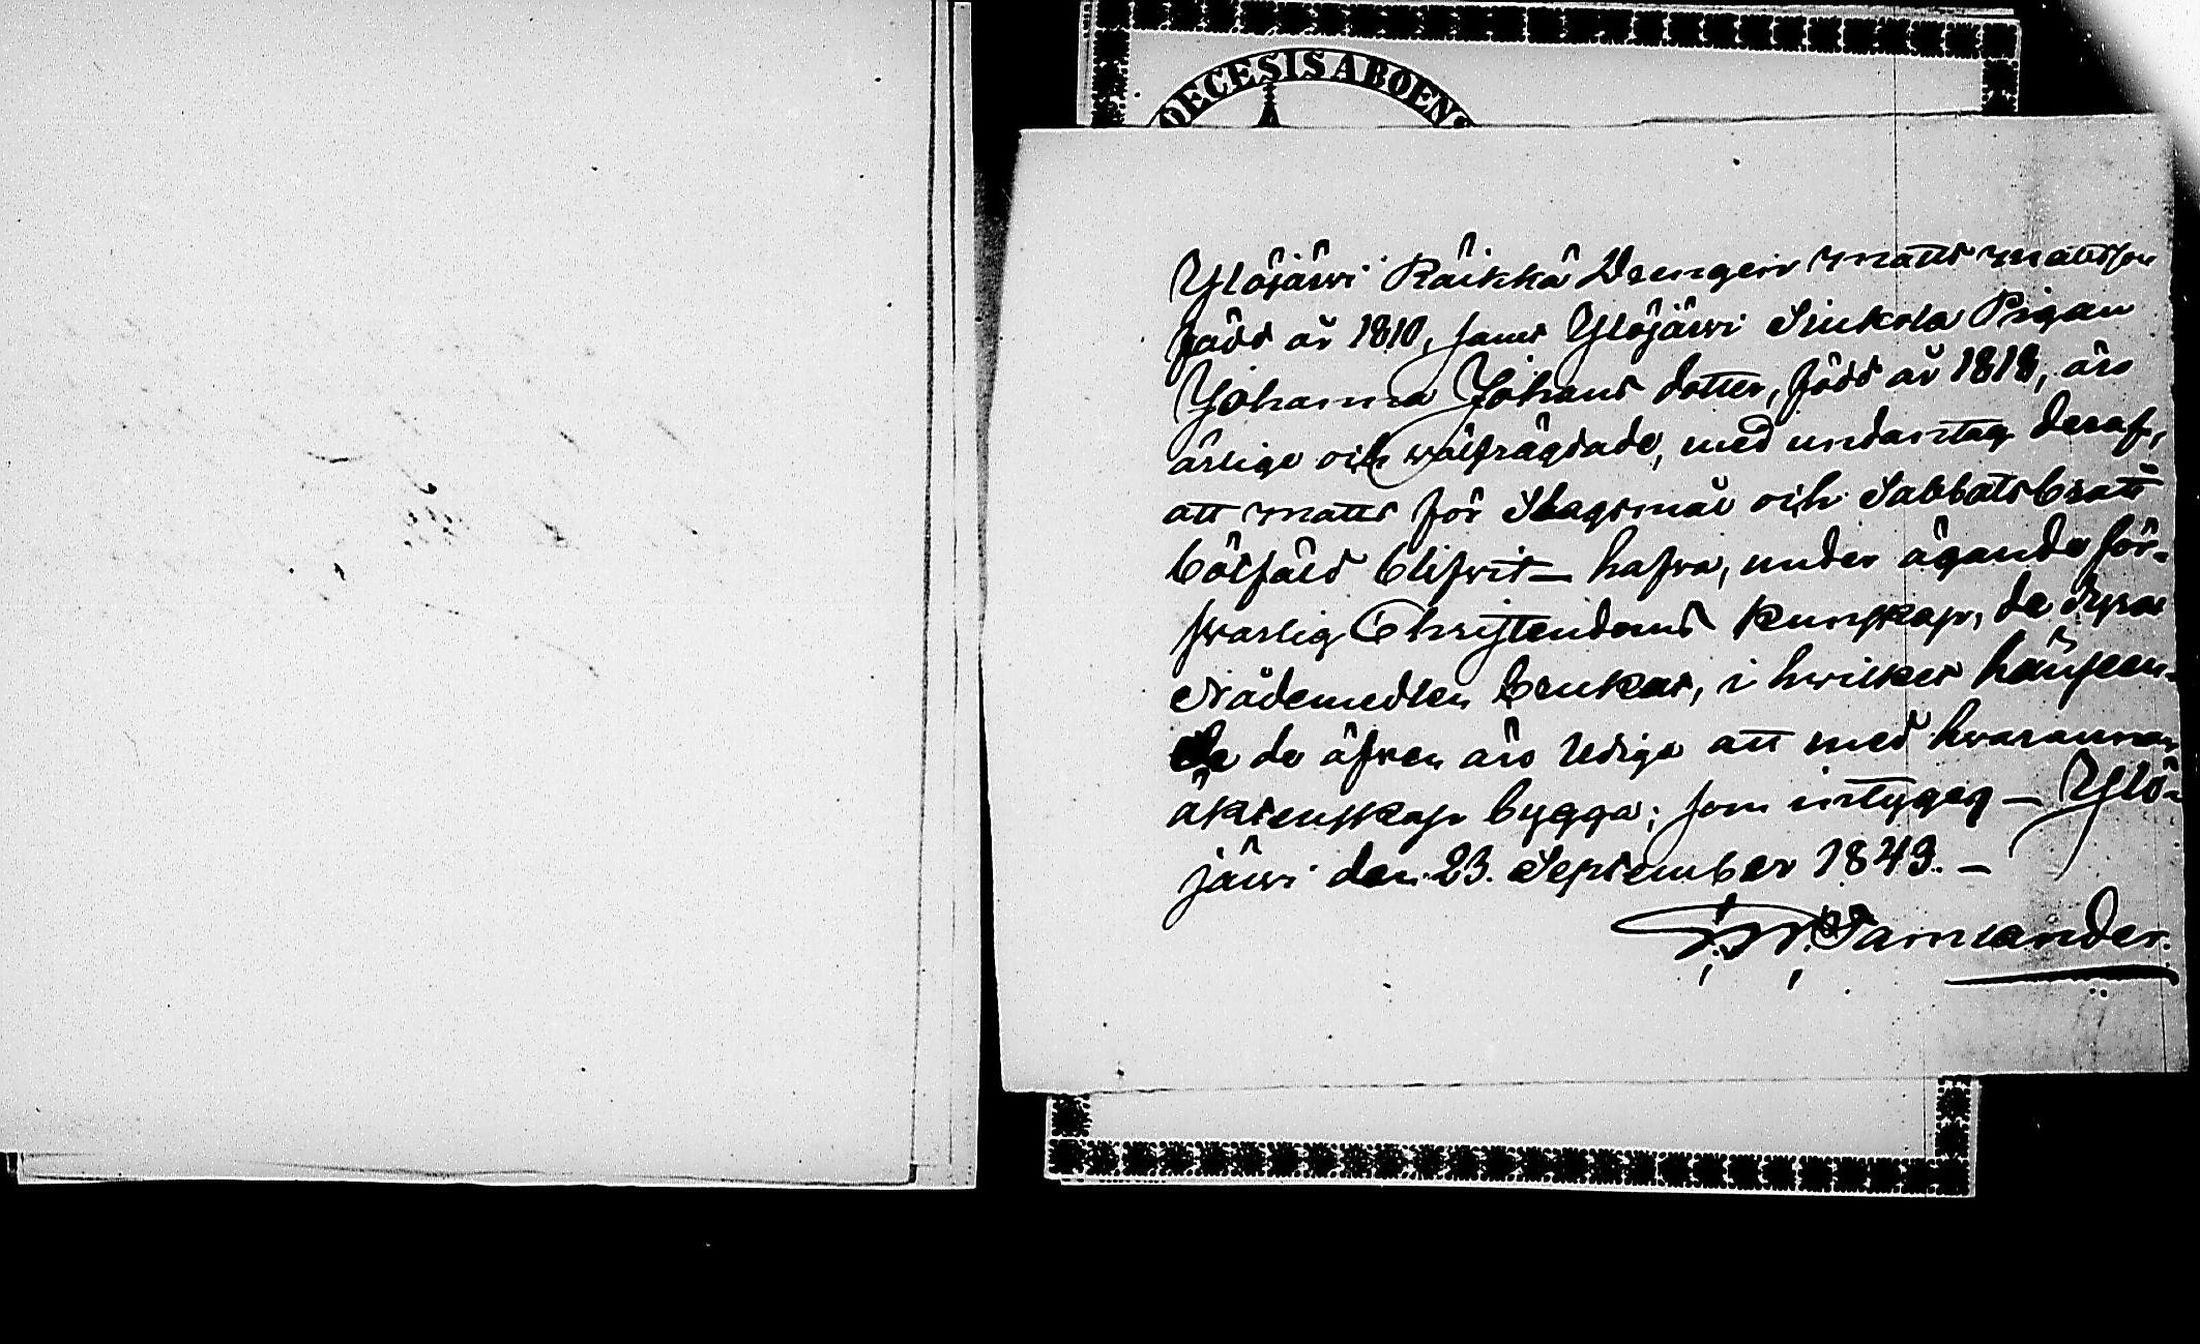 DECESIS ABOENS
Ylöjärvi Räikkä Drengen Matts Mattsson
född år 1810, samt Ylöjärvi Siukola Pigan
Johanna Johans dotter, född år 1818, äro
ärlige och wälfrägdade, med undantag deraf,
att Matts för Slagsmål och Sabbatsbrott
bötfäld blifvit – hafva, under ägande för-
svarlig Christendoms kunskap, de dyra
Nådemedlen brukat, i hvilket hänseen-
de de äfven äro ledige att med hvarannan
äktenskap bygga; som intygas – Ylö-
järvi den 23. September 1849. –
Tamlander.